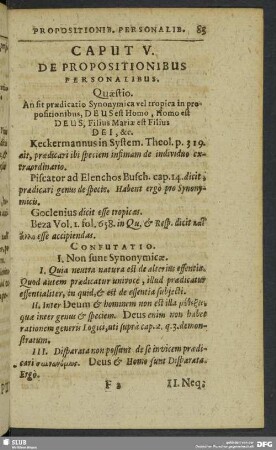 PROPOSITIONIB. PERSONALIB. 85
CAPUT V.
DE PROPOSITIONIBUS
PERSONALIBUS.
Quæstio.
An sit prædicatio Synonymica vel tropica in pro-
positionibus, DEUS est Homo, Homo est
DEUS, Filius Mariæ est Filius
DEI, &c.
Keckermannus in System. Theol. p. 319.
ait, prædicari ibi speciem infimam de individuo ex-
traordinario.
Piscator ad Elenchos Busch. cap. 14. dicit,
prædicari genus de specie. Habent ergò pro Synony-
micis.
Goclenius dicit esse tropicas.
Beza Vol. 1. fol. 638. in Qu. & Resp. dicit
esse accipiendas.
CONFUTATIO.
I. Non sunt Synonymicæ.
I. Quia neutra natura est de alterius essentia.
Quod autem prædicatur univocè, illud prædicatur
essentialiter, in quid, & est de essentia subjecti.
II. Inter Deum & hominem non est illa
quæ inter genus & speciem. Deus enim non habet
rationem generis Logici, uti supra cap. 2. q. 3. demon-
stratum.
III. Disparata non possunt de se invicem prædi-
cari Deus & Homo sunt Disparata.
Ergò.
F 3 II. Neq;
SLUB
DFG